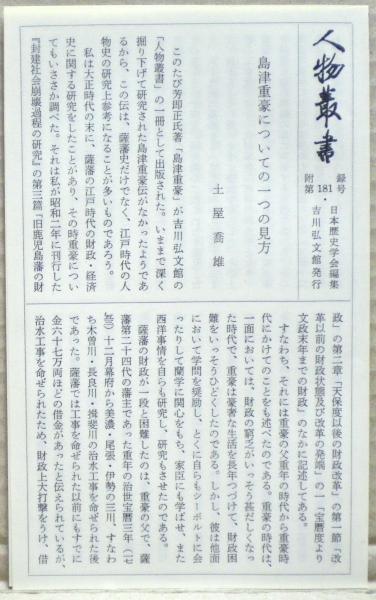 人物叢書
附録
第181号
日本歴史学会編集
吉川弘文館発行
島津重豪についての一つの見方
土屋喬雄
このたび芳即正氏著「島津重豪」が吉川弘文館の
「人物叢書」の一冊として出版された。いままで深く
掘り下げて研究された島津重豪伝がなかったようであ
るから、この伝は、薩藩史だけでなく、江戸時代の人
物史の研究上参考になることが多いものであろう。
私は大正時代の末に、薩藩の江戸時代の財政・経済
史に関する研究をしたことがあり、その時重豪につい
てもいささか調べた。それは私が昭和二年に刊行した
『封建社会崩壊過程の研究』の第三篇「旧鹿児島藩の財
政」の第三章「天保度以後の財政改革」の第一節「改
革以前の財政状態及び改革の発端」の一「宝暦度より
文政末年までの財政」のなかに記述してある。
すなわち、それには重豪の父重年の時代から重豪時
代にかけてのことをも述べたのである。重豪の時代は、
一面においては、財政の窮乏がいっそう甚だしくなっ
た時代で、重豪は豪奢な生活を長年つづけて、財政困
難をいっそうひどくしたのである。しかし、彼は他面
において学問を奨励し、とくに自らもシーボルトに会
ったりして蘭学に関心をもち、家臣にも学ばせ、また
西洋事情を自らも研究し、研究もさせたのである。
薩藩の財政が一段と困難したのは、重豪の父で、薩
藩第二十四代の藩主であった重年の治世宝暦三年(一七
五三)十二月幕府から美濃・尾張・伊勢の三川、すなわ
ち木曽川・長良川・揖斐川の治水工事を命ぜられた後
であった。薩藩では工事を命ぜられた以前にもすでに
金六十七万両ほどの借金があったと伝えられているが、
治水工事を命ぜられたため、財政上大打撃をうけ、借